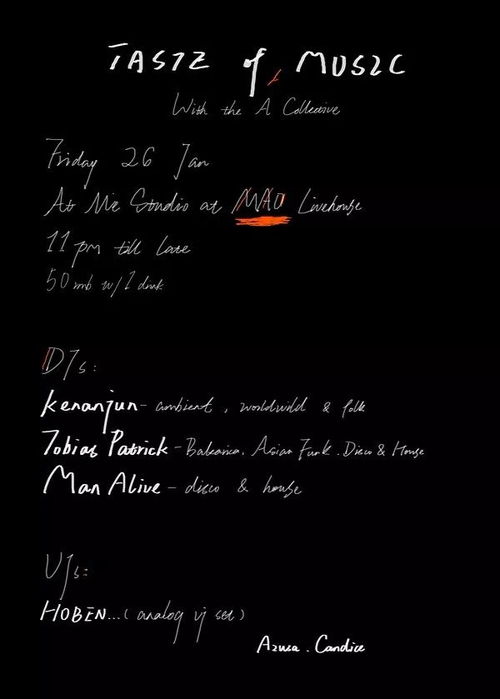 TASTE of MUSIC
With the A Collective
Friday 26 Jan
At Me Studio at MAO Livehouse
11pm till late
50rmb w/1 drink
DJs:
Kenanjun - ambient, worldwild & folk
Tobias Patrick - Balearica, Asian Funk, Disco & House
Man Alive - disco & house
VJs:
HOBEN...(analog vj set)
Azusa. Candice